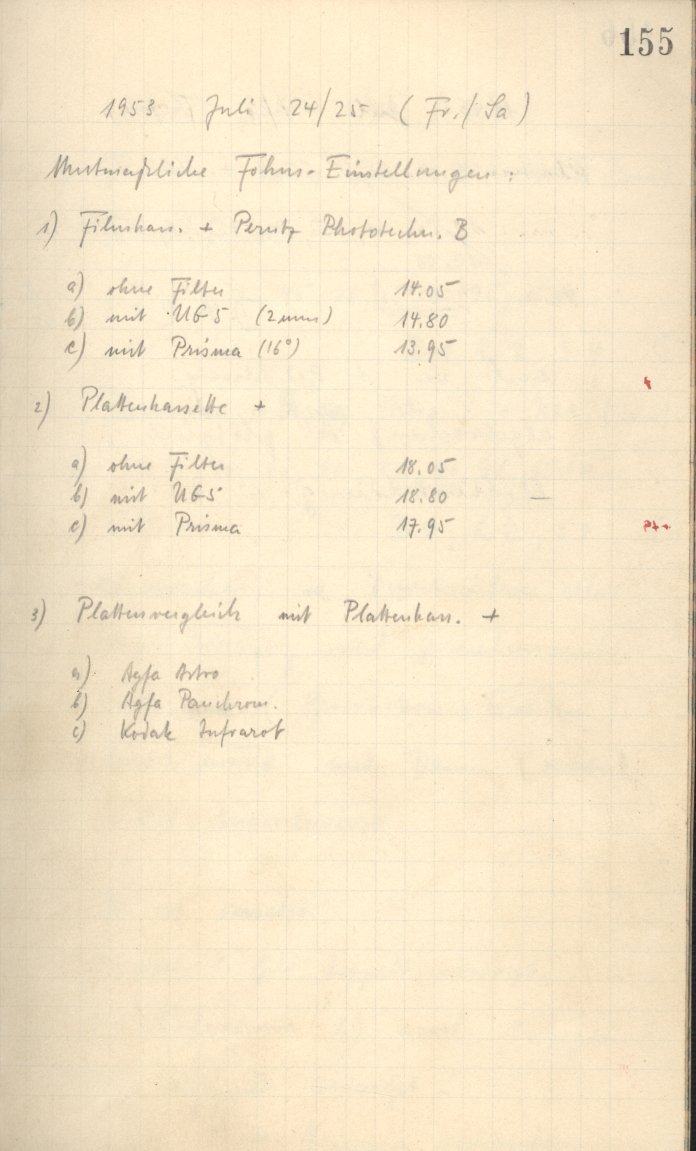 155
1953 Juli 24/25 (Fr./Sa)
Mutmaßliche Fokus-Einstellungen:
1) Filmkass. + Perutz Phototechn. B
a) ohne Filter 14.05
b) mit UG 5 (2 mm) 14.80
c) mit Prisma (16°) 13.95
2) Plattenkassette +
a) ohne Filter 18.05
b) mit UG 5 18.80 —
c) mit Prisma 17.95
3) Plattenvergleich mit Plattenkass. +
a) Agfa Astro
b) Agfa Panchrom.
c) Kodak Infrarot